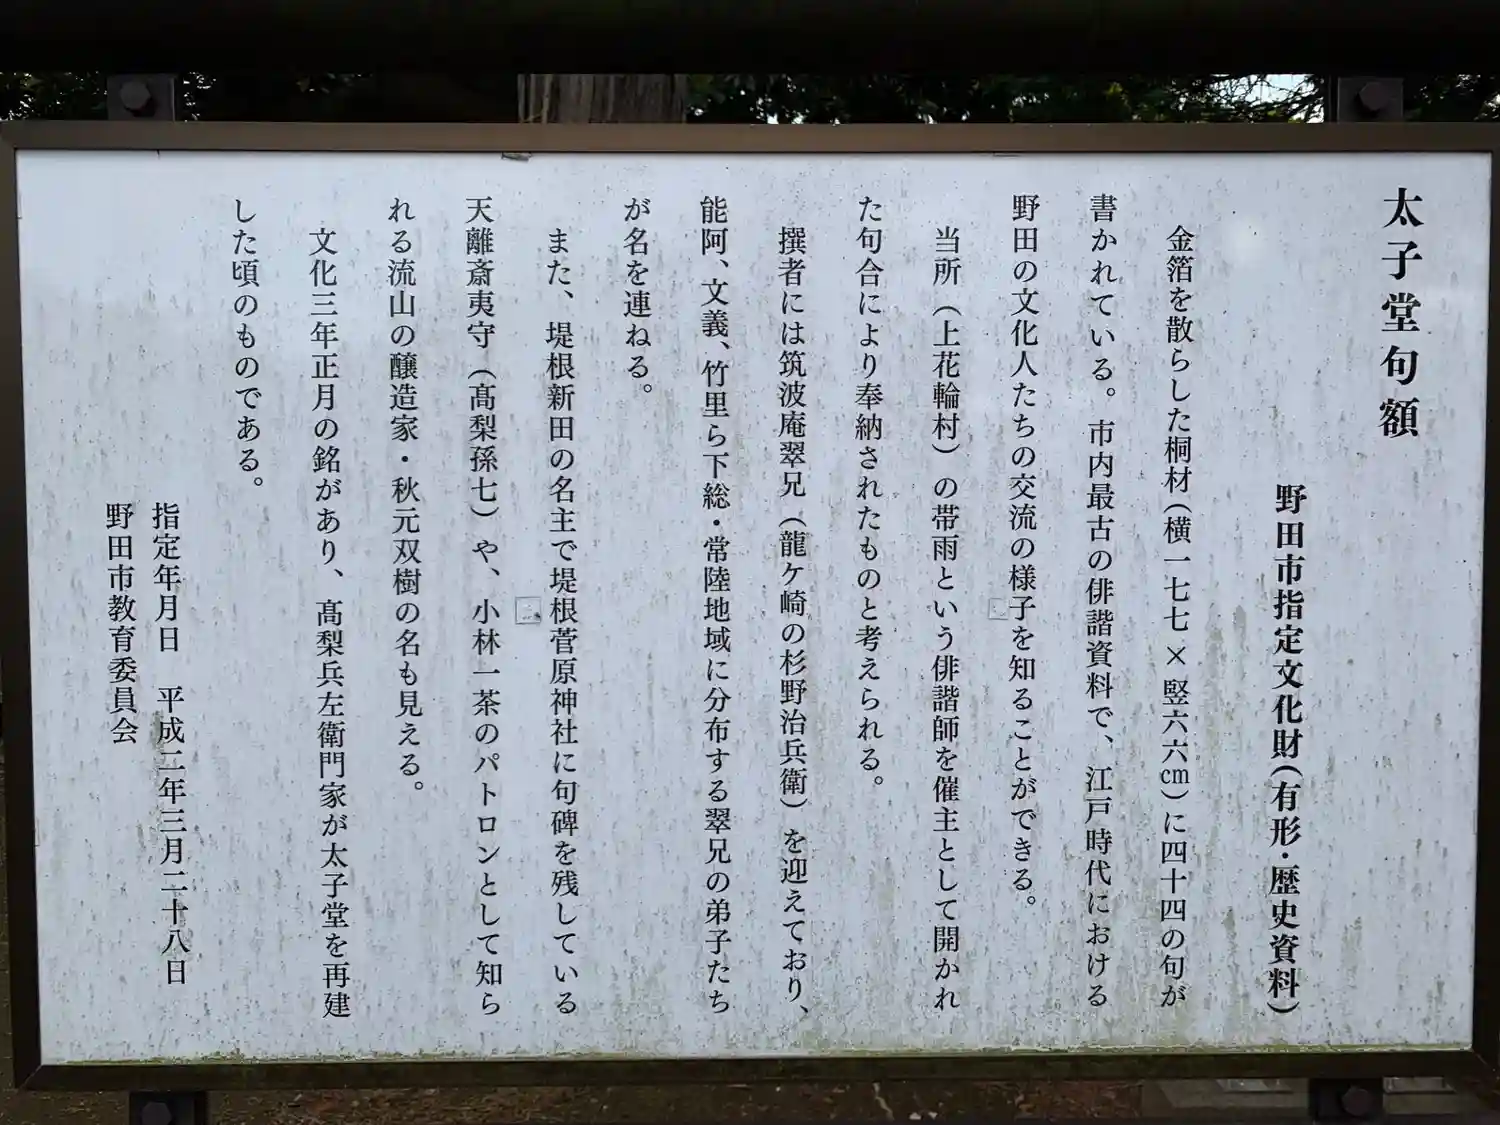 太子堂句額
野田市指定文化財(有形・歴史資料)
金箔を散らした桐材(横一七七×竪六六㎝)に四十四の句が
書かれている。市内最古の俳諧資料で、江戸時代における
野田の文化人たちの交流の様子を知ることができる。
当所（上花輪村）の帯雨という俳諧師を催主として開かれ
た句合により奉納されたものと考えられる。
撰者には筑波庵翠兄（龍ケ崎の杉野治兵衛）を迎えており、
能阿、文義、竹里ら下総・常陸地域に分布する翠兄の弟子たち
が名を連ねる。
また、堤根新田の名主で堤根菅原神社に句碑を残している
天離斎夷守（髙梨孫七）や、小林一茶のパトロンとして知ら
れる流山の醸造家・秋元双樹の名も見える。
文化三年正月の銘があり、髙梨兵左衛門家が太子堂を再建
した頃のものである。
指定年月日　平成二年三月二十八日
野田市教育委員会